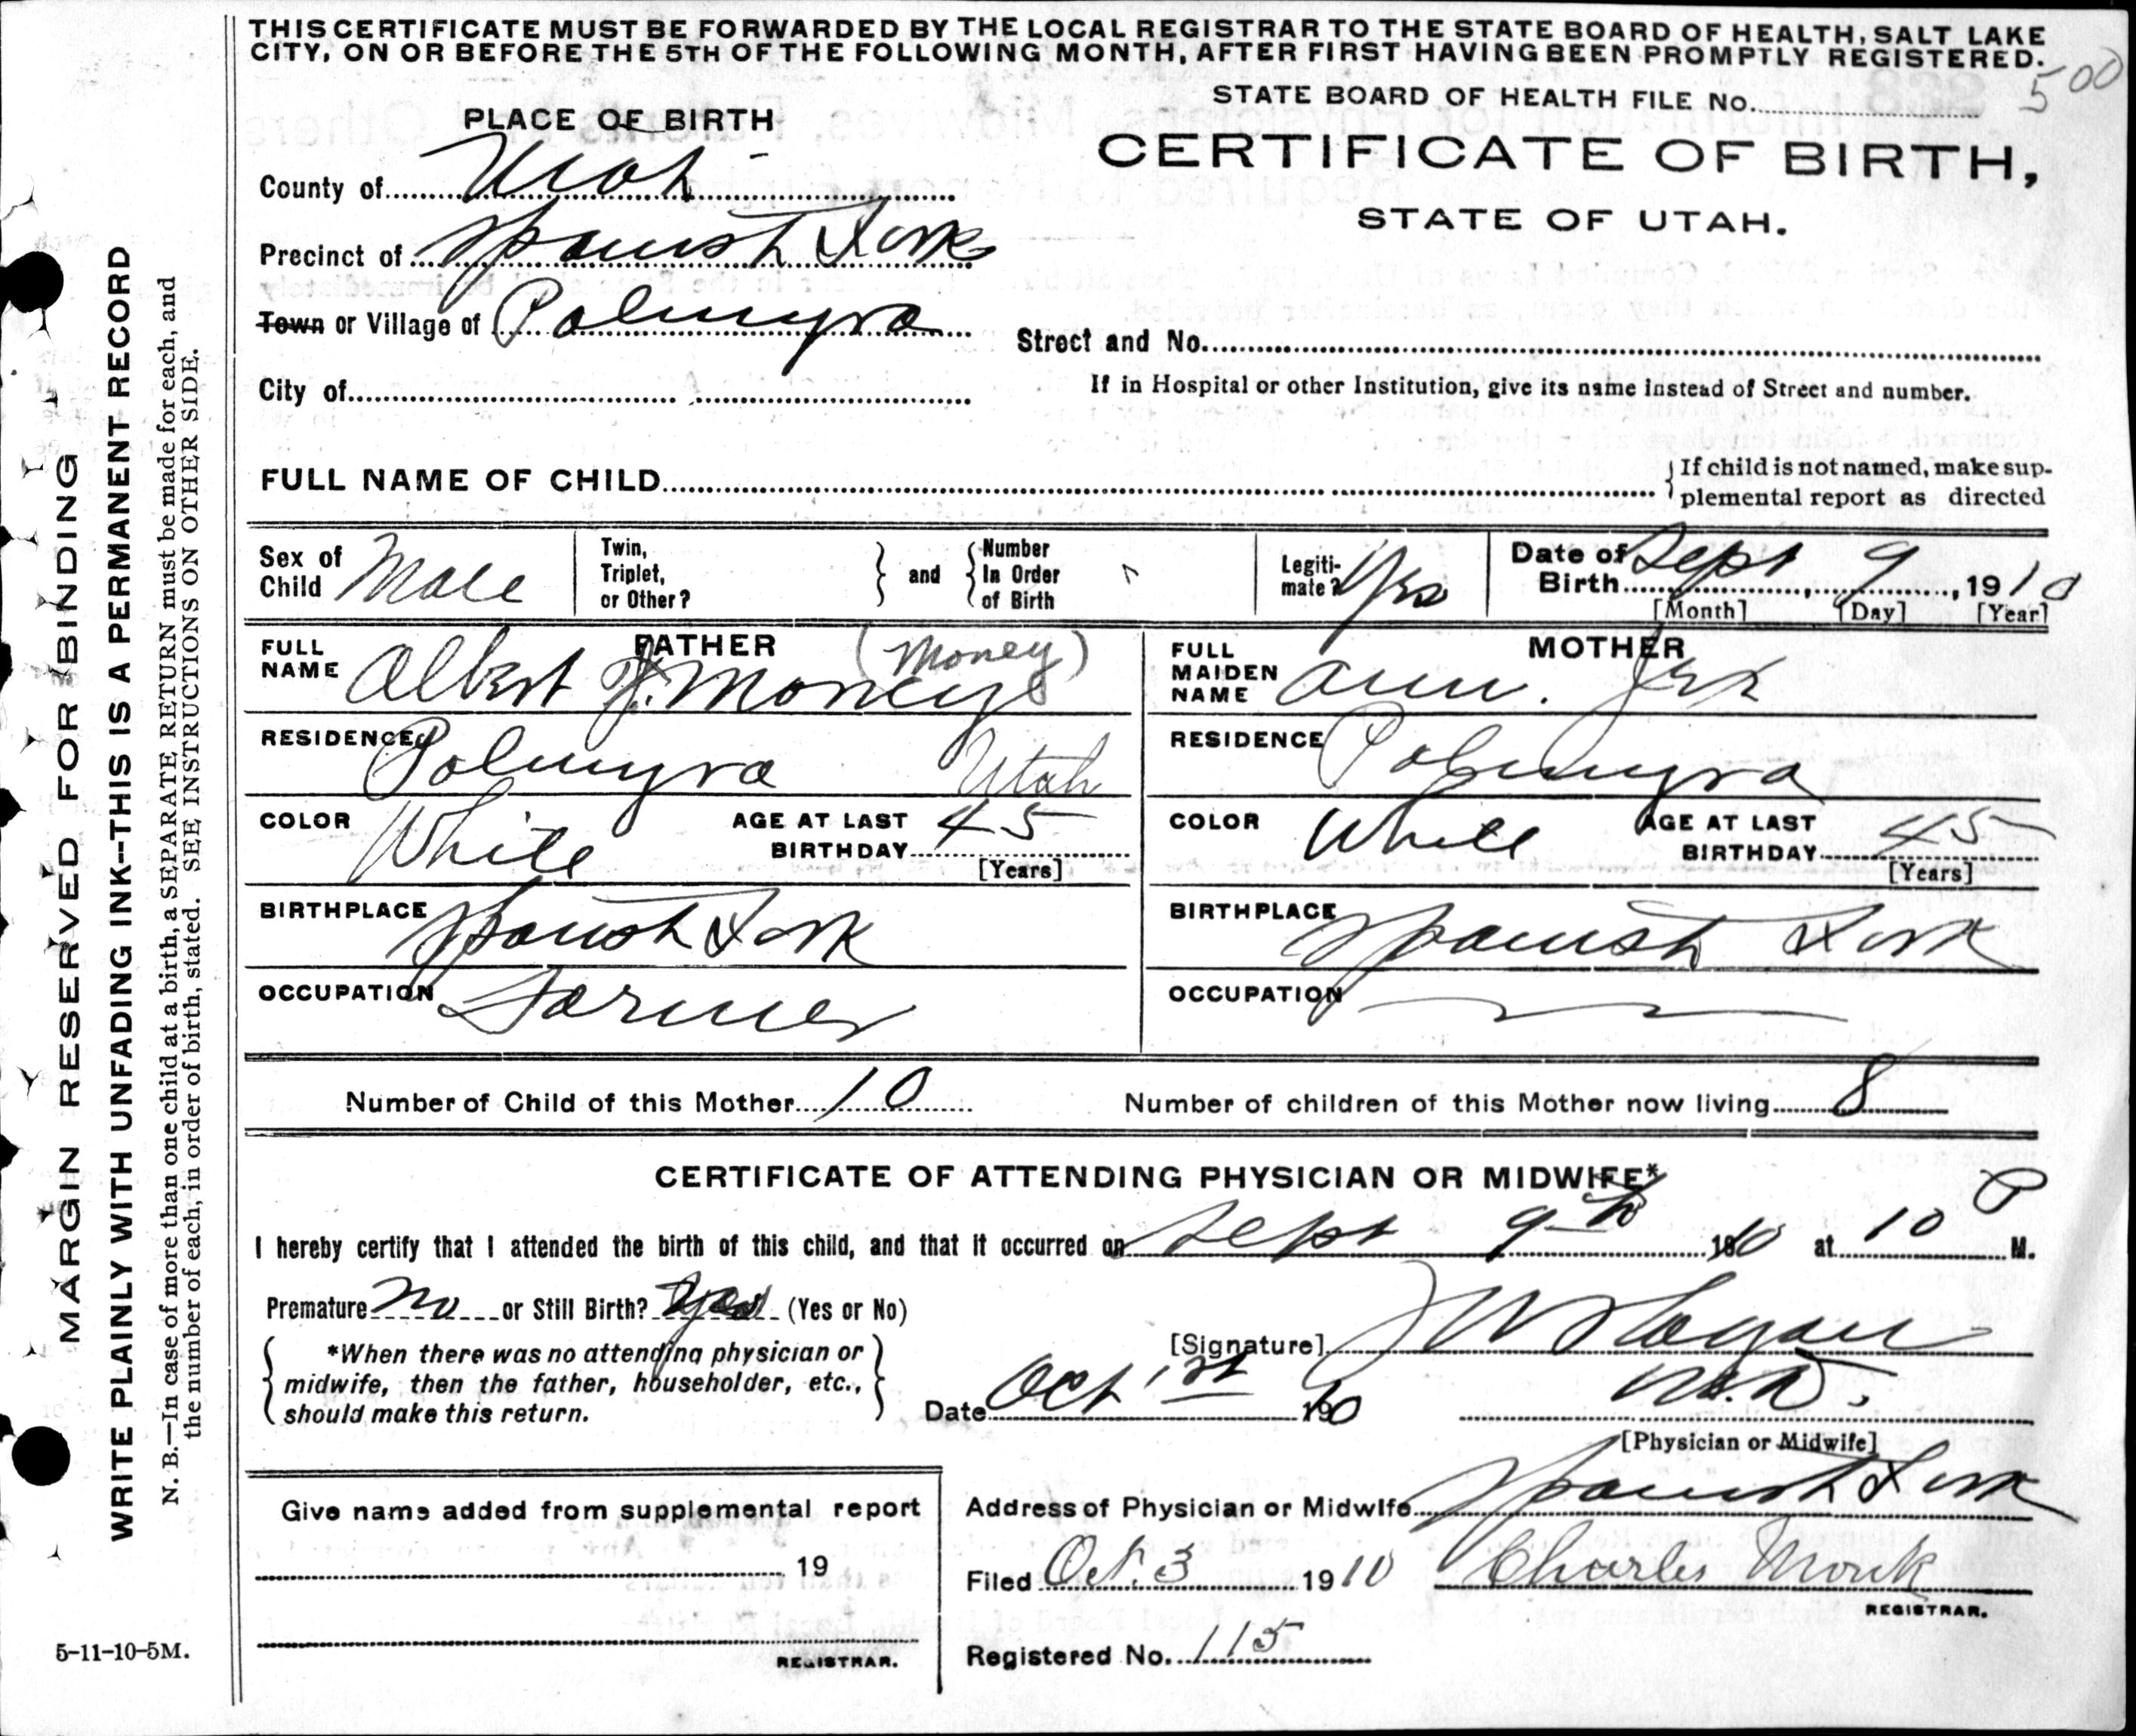 THIS CERTIFICATE MUST BE FORWARDED BY THE LOCAL REGISTRAR TO THE STATE BOARD OF HEALTH, SALT LAKE
CITY, ON OR BEFORE THE 5TH OF THE FOLLOWING MONTH, AFTER FIRST HAVING BEEN PROMPTLY REGISTERED.
STATE BOARD OF HEALTH FILE No. 500
PLACE OF BIRTH
CERTIFICATE OF BIRTH,
STATE OF UTAH.
County of Utah
Precinct of Spanish Fork
Town or Village of Palmyra
Street and No.
City of
If in Hospital or other Institution, give its name instead of Street and number.
FULL NAME OF CHILD
If child is not named, make sup-
plemental report as directed
Sex of Child Male
Twin, Triplet, or Other?
and
Number In Order of Birth
Legiti-mate? Yes
Date of Birth Sept 9, 1910
[Month] [Day] [Year]
FATHER
FULL NAME Albert J. Money (Money)
RESIDENCE Palmyra Utah
COLOR White AGE AT LAST BIRTHDAY 45
[Years]
BIRTHPLACE Spanish Fork
OCCUPATION Farmer
MOTHER
FULL MAIDEN NAME Ann. Jex
RESIDENCE Palmyra
COLOR White AGE AT LAST BIRTHDAY 45
[Years]
BIRTHPLACE Spanish Fork
OCCUPATION
Number of Child of this Mother 10 Number of children of this Mother now living 8
CERTIFICATE OF ATTENDING PHYSICIAN OR MIDWIFE*
I hereby certify that I attended the birth of this child, and that it occurred on Sept 9th 1910 at 10 P M.
Premature No or Still Birth? Yes (Yes or No)
*When there was no attending physician or
midwife, then the father, householder, etc.,
should make this return.
[Signature] Hagan
M.D.
Date Oct 1st 1910
[Physician or Midwife]
Give name added from supplemental report
19
REGISTRAR.
Address of Physician or Midwife Spanish Fork
Filed Oct. 3 1910 Charles Monk
REGISTRAR.
Registered No. 115
5-11-10-5M.
MARGIN RESERVED FOR BINDING
WRITE PLAINLY WITH UNFADING INK--THIS IS A PERMANENT RECORD
N. B.—In case of more than one child at a birth, a SEPARATE RETURN must be made for each, and
the number of each, in order of birth, stated. SEE INSTRUCTIONS ON OTHER SIDE.